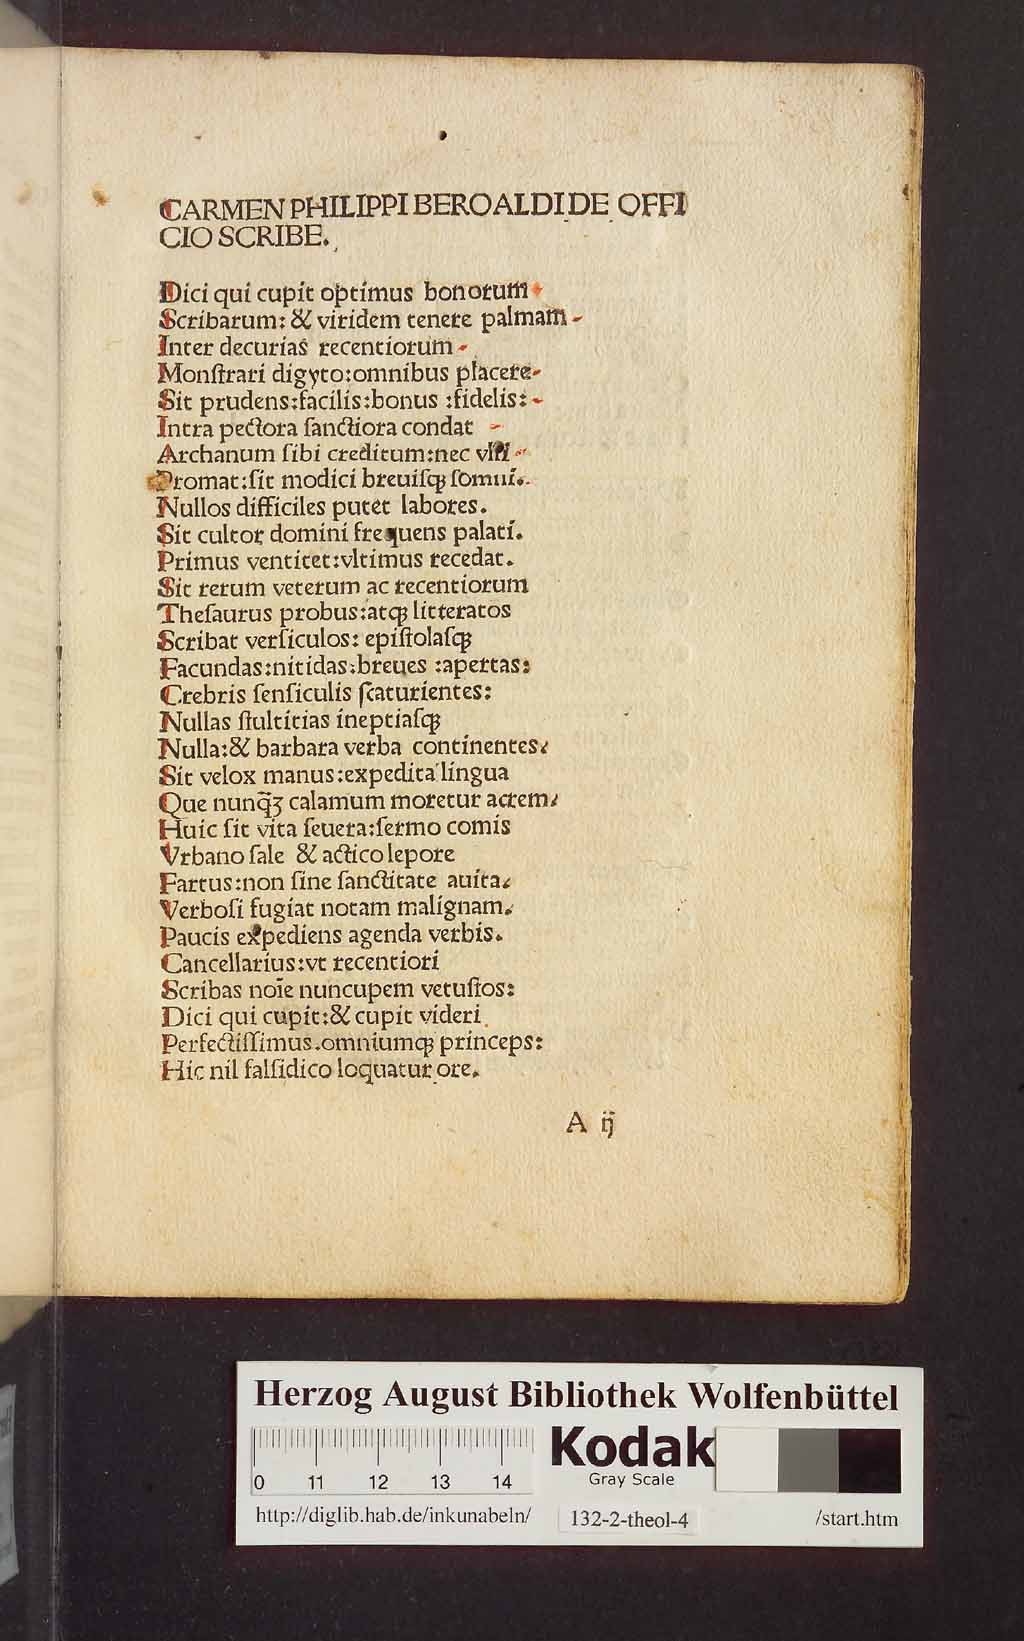 CARMEN PHILIPPI BEROALDI DE OFFI
CIO SCRIBE.
Dici qui cupit optimus bonorum
Scribarum: & viridem tenere palmam
Inter decurias recentiorum
Monſtrari digyto:omnibus placere
Sit prudens:facilis:bonus :fidelis:
Intra pectora ſanctiora condat
Archanum ſibi creditum:nec vlli
Promat:ſit modici breuiſqꝫ ſomni.
Nullos difficiles putet labores.
Sit cultor domini frequens palati.
Primus ventitet:vltimus recedat.
Sit rerum veterum ac recentiorum
Theſaurus probus:atqꝫ litteratos
Scribat verſiculos: epiſtolaſqꝫ
Facundas:nitidas:breues :apertas:
Crebris ſenſiculis ſcaturientes:
Nullas ſtultitias ineptiaſqꝫ
Nulla:& barbara verba continentes.
Sit velox manus:expedita lingua
Que nunq̃ꝫ calamum moretur acrem.
Huic ſit vita ſeuera:ſermo comis
Vrbano ſale & actico lepore
Fartus:non ſine ſanctitate auita.
Verboſi fugiat notam malignam.
Paucis expediens agenda verbis.
Cancellarius:vt recentiori
Scribas noīe nuncupem vetuſtos:
Dici qui cupit:& cupit videri
Perfectiſſimus.omniumqꝫ princeps:
Hic nil falſidico loquatur ore.
A ij
Herzog August Bibliothek Wolfenbüttel
0 11 12 13 14
Kodak
Gray Scale
http://diglib.hab.de/inkunabeln/ 132-2-theol-4 /start.htm